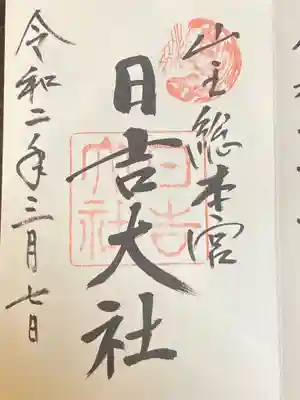 山王総本宮
日吉大社
令和二年三月七日
日吉
大社